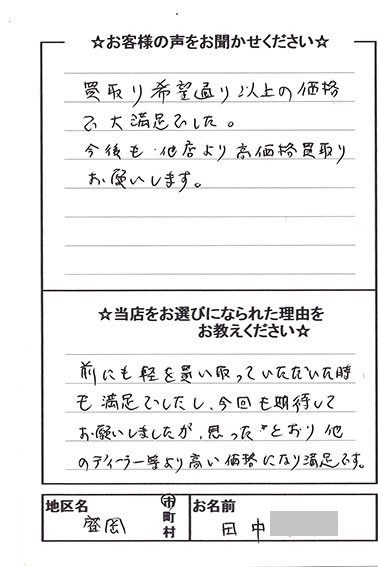 ☆お客様の声をお聞かせください☆
買取り希望通り以上の価格
で大満足でした。
今後も、他店より高価格買取り
お願いします。
☆当店をお選びになられた理由を
お教えください☆
前にも軽を買い取っていただいた時
も満足でしたし、今回も期待して
お願いしましたが、思ったとおり他
のディーラー等より高い価格になり満足です。
地区名
盛岡
市
町
村
お名前
田中